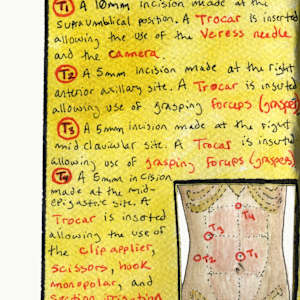 T1 A 10mm incision made at the
supraumbilical position. A Trocar is inserted
allowing the use of the Veress needle
and the camera.
T2 A 5mm incision made at the right
anterior axillary site. A Trocar is inserted
allowing use of grasping forceps (grasper)
T3 A 5mm incision made at the right
mid clavicular site. A Trocar is inserted
allowing use of grasping forceps (graspes)
T4 A 5mm incision
made at the mid-
epigastric site. A
Trocar is inserted
allowing the use of
the clip applier,
scissors, hook
monopolar, and
suction irrigation
T4
T3
T2
T1